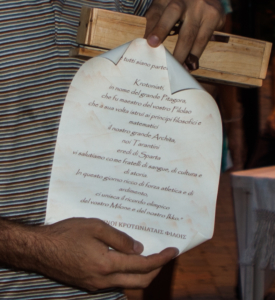 tutti siamo parte
Krotoniati,
in nome del grande Pitagora,
che fu maestro del vostro Filolao
che a sua volta iniziò ai principi filosofici e
matematici
il nostro grande Archita,
noi Tarantini
eredi di Sparta
vi salutiamo come fratelli di sangue, di cultura e
di storia.
In questo giorno ricco di forza atletica e di
ardimento,
vi unisce il ricordo olimpico
del vostro Milone e del nostro Ikko."
ΚΡΟΤΩΝΙΑΤΑΙΣ ΦΙΛΟΙΣ